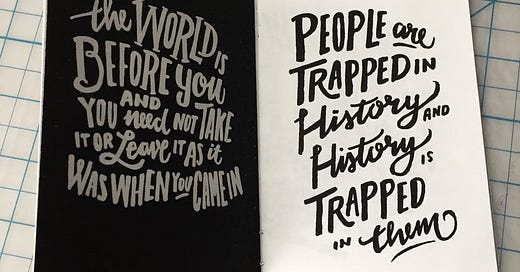 the WORLD is
BEFORE you
AND
YOU need NOT TAKE
IT OR Leave IT AS it
WAS WHEN You CAME IN
PEOPLE are
TRAPPED IN
History AND
History IS
TRAPPED
IN them